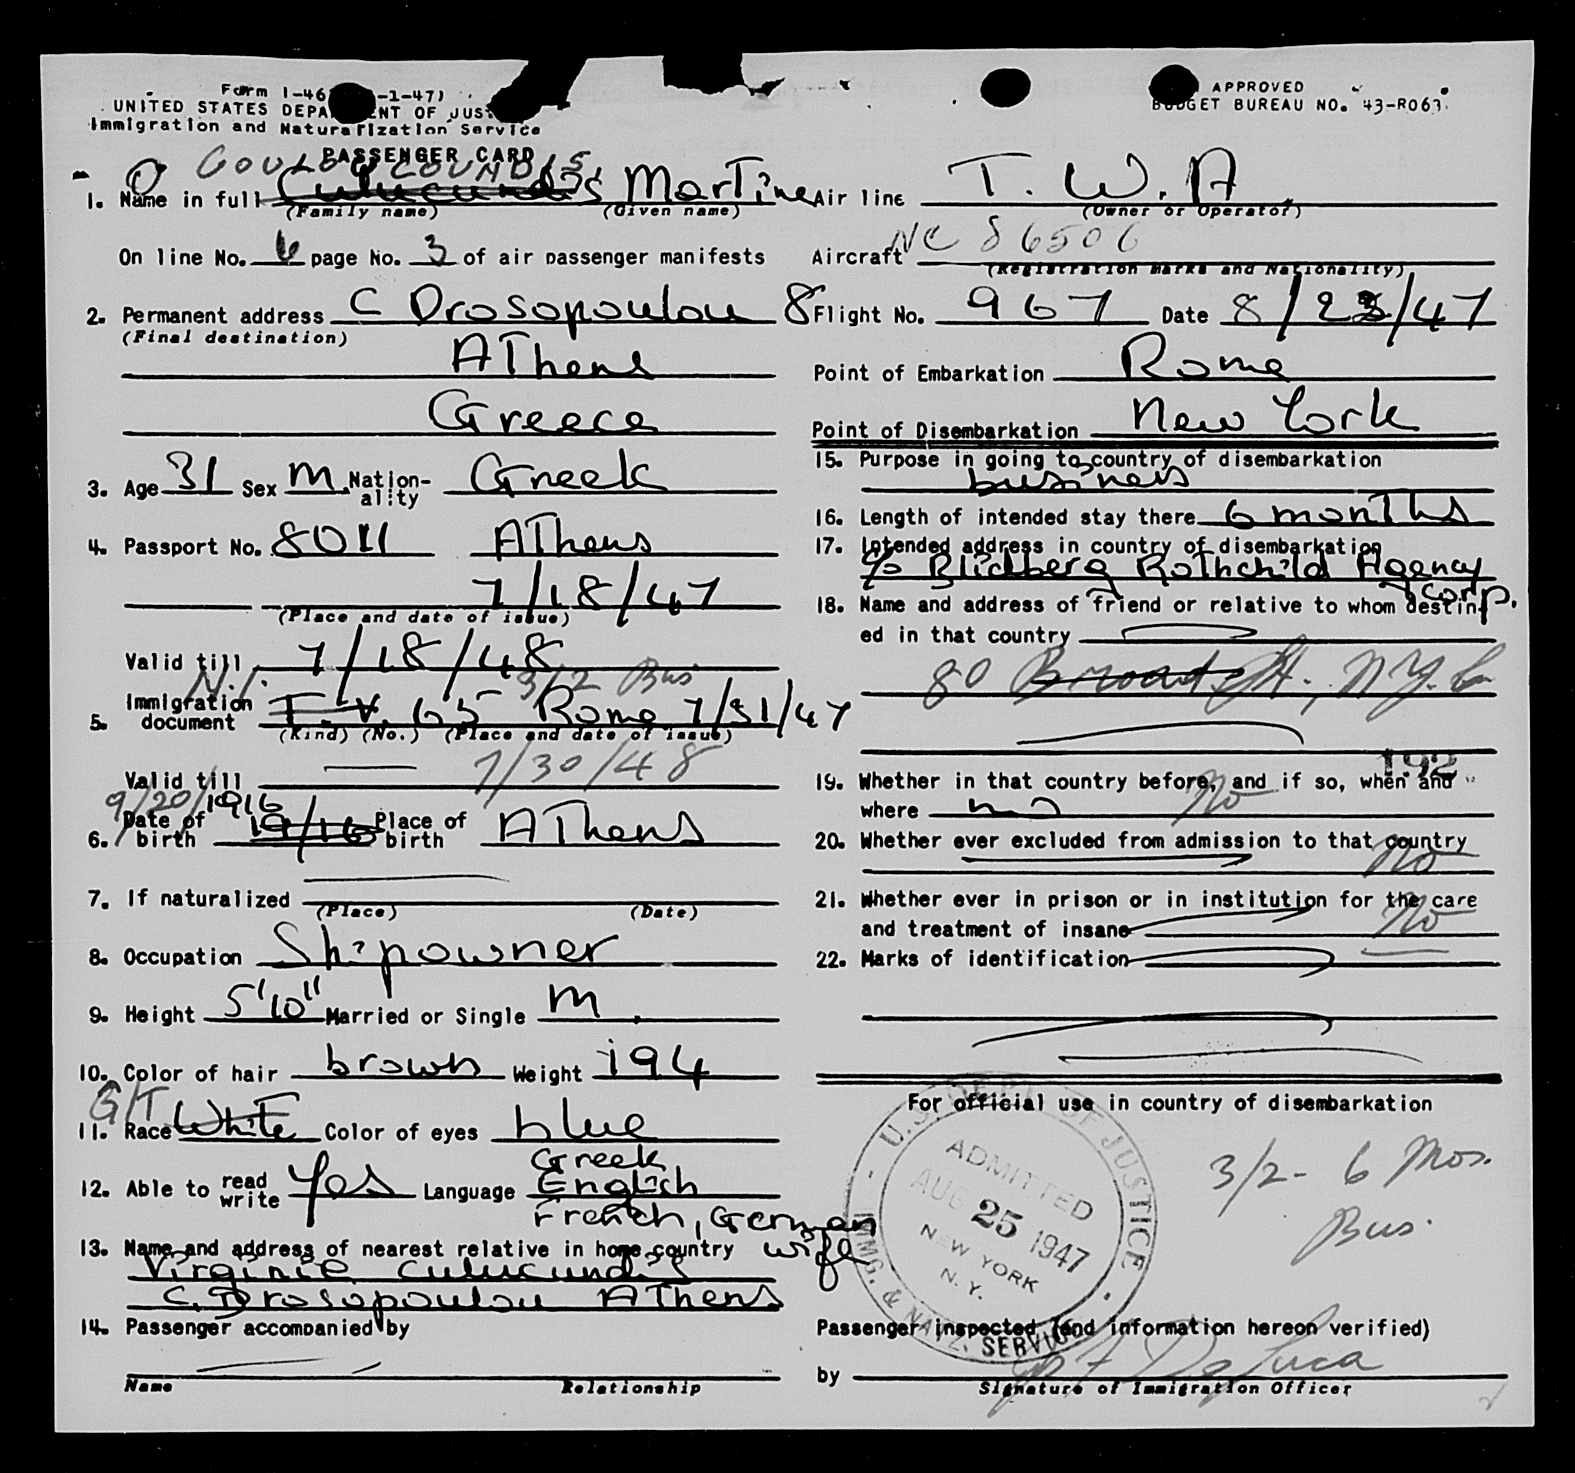 Form I-46 -1-47)
UNITED STATES DEPA ENT OF JUS
Immigration and Naturalization Service
APPROVED
BUDGET BUREAU NO. 43-R063.
PASSENGER CARD
COULOUCOUNDIS
1. Name in full Culucundis Martine
(Family name) (Given name)
On line No. 6 page No. 3 of air passenger manifests
2. Permanent address C Drosopoulou 8
(Final destination)
Athens
Greece
3. Age 31 Sex M Nation-
ality Greek
4. Passport No. 8011 Athens
7/18/47
(Place and date of issue)
Valid till 7/18/48
N.I. 3/2 Bus
5. Immigration
document T. V. 65 Rome 7/31/47
(Kind) (No.) (Place and date of issue)
Valid till 7/30/48
9/20/1916
6. Date of
birth 19/16 Place of
birth Athens
7. If naturalized
(Place) (Date)
8. Occupation Shipowner
9. Height 5'10" Married or Single M
10. Color of hair brown Weight 194
G/T
11. Race White Color of eyes blue
Greek
12. Able to read
write Yes Language English
French, German
13. Name and address of nearest relative in home country wife
Virginie Culucundis
C. Drosopoulou Athens
14. Passenger accompanied by
Name Relationship
Air line T. W. A.
(Owner or Operator)
Aircraft NC 86506
(Registration marks and Nationality)
Flight No. 967 Date 8/23/47
Point of Embarkation Rome
Point of Disembarkation New York
15. Purpose in going to country of disembarkation
business
16. Length of intended stay there 6 months
17. Intended address in country of disembarkation
c/o Blidberg Rothchild Agency
Corp.
18. Name and address of friend or relative to whom destin-
ed in that country
80 Broad St., N.Y.C.
192
19. Whether in that country before, and if so, when and
where no No
20. Whether ever excluded from admission to that country
No
21. Whether ever in prison or in institution for the care
and treatment of insane No
22. Marks of identification
For official use in country of disembarkation
U.S. DEPT. OF JUSTICE
ADMITTED
AUG 25 1947
NEW YORK
N.Y.
IMMG. & NATZ. SERVICE
3/2 - 6 Mos.
Bus.
Passenger inspected (and information hereon verified)
by De Luca
Signature of Immigration Officer